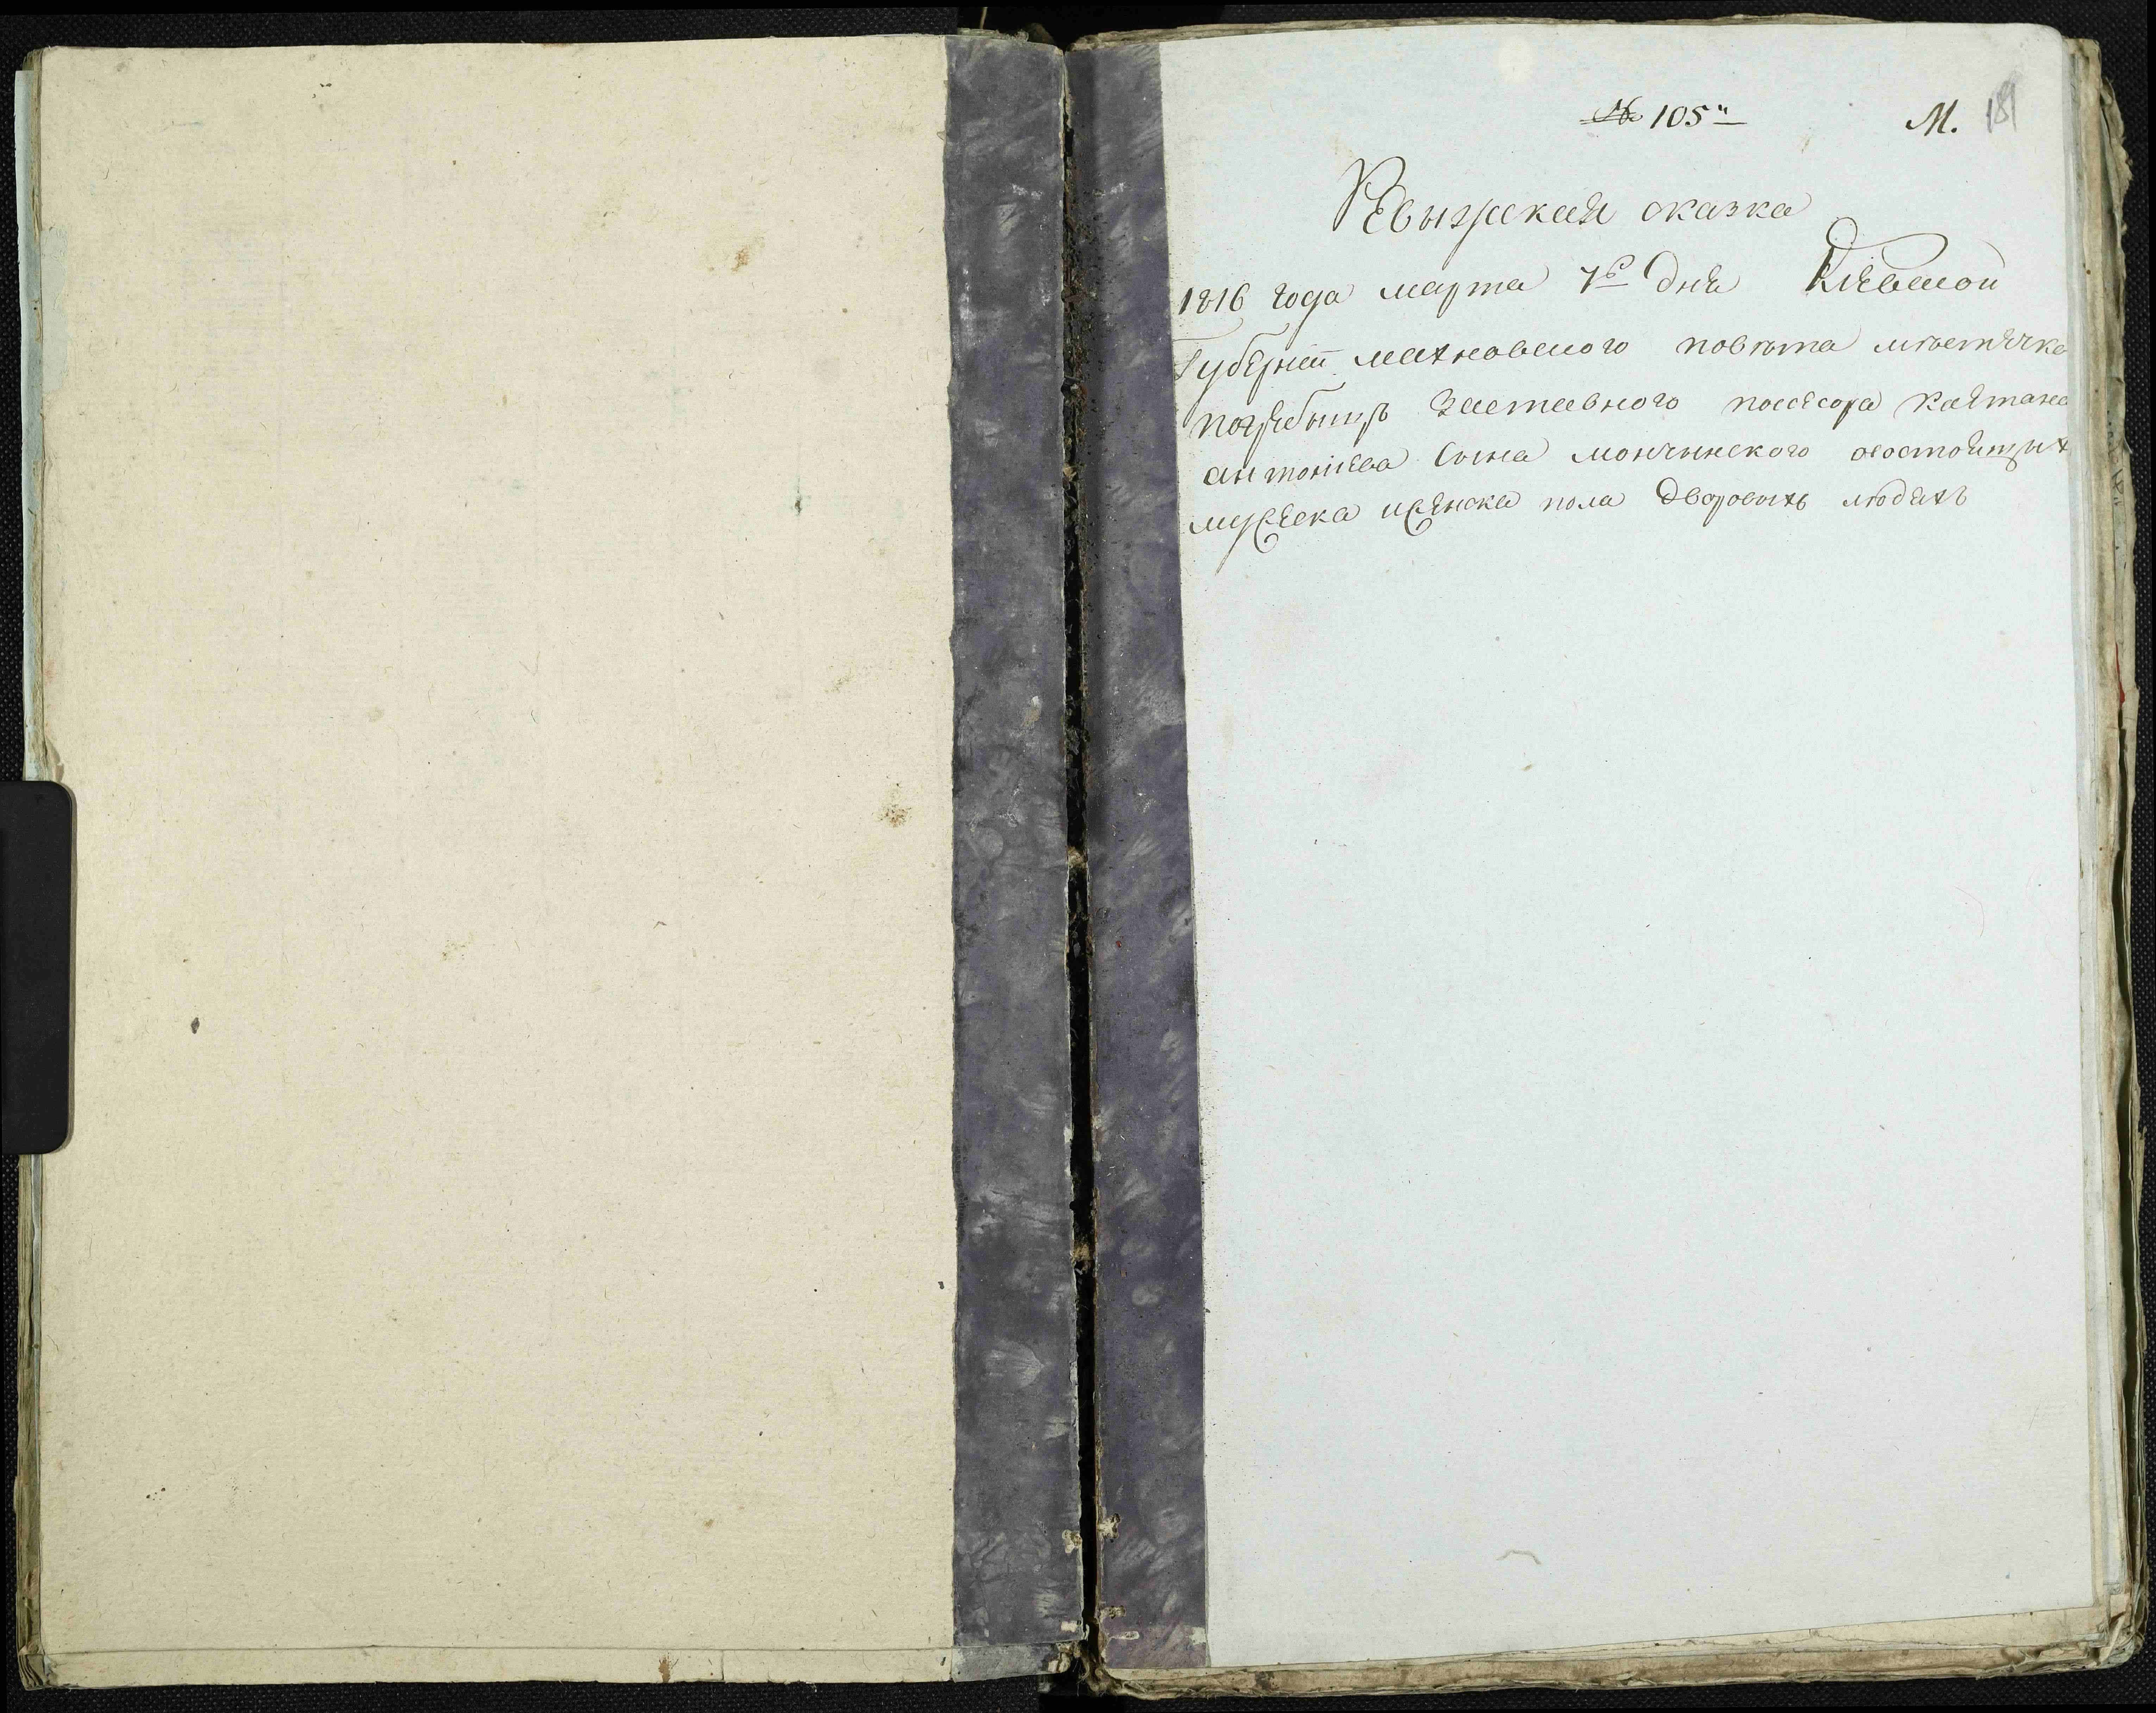 № 105"
М. 181
Ревызская сказка
1816 года марта 7го дня Киевской
Губернии махновского повѣта мѣстечка
погребыщъ Заставного поссесора каетана
антониева Сына мончинского осостоящых
мужеска иженска пола Дворовыхъ людяхъ